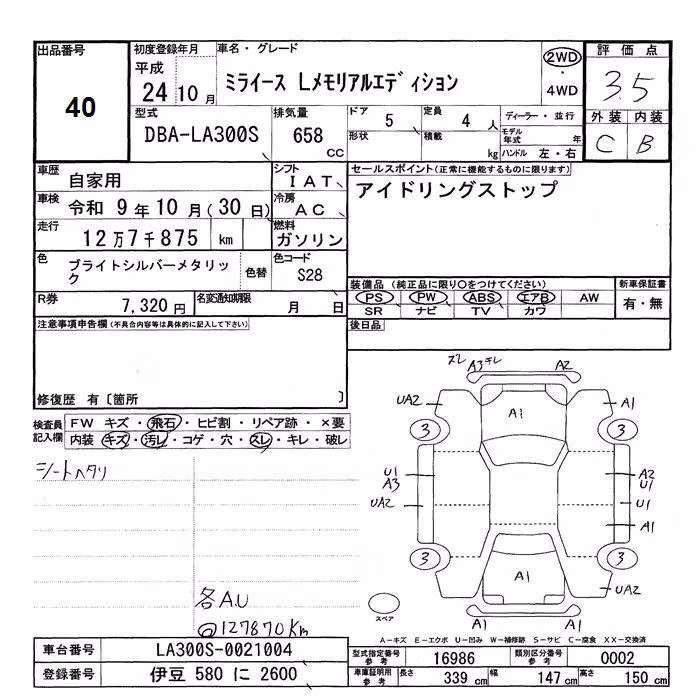 出品番号
40
初度登録年月
平成
24 10 月
車名・グレード
ミライース Lメモリアルエディション
2WD
・
4WD
評価点
3.5
外装 内装
C B
型式
DBA-LA300S
排気量
658
CC
ドア 5
形状
定員 4 人
積載 kg
ディーラー・並行
モデル年式 年
ハンドル 左・右
車歴 自家用
シフト IAT
車検 令和 9 年 10 月 (30 日)
冷房 AC
走行 12 万 7 千 875 km
燃料 ガソリン
色 ブライトシルバーメタリック
色替
色コード S28
R券 7,320 円
名変通知期限 月 日
セールスポイント(正常に機能するものに限ります)
アイドリングストップ
装備品 (純正品に限り○をつけてください)
PS PW ABS エアB AW
SR ナビ TV カワ
新車保証書
有・無
後日品
注意事項申告欄(不具合内容等は具体的に記入して下さい)
修復歴 有〔箇所 〕
検査員記入欄
FW キズ・飛石・ヒビ割・リペア跡・×要
内装 キズ・汚レ・コゲ・穴・スレ・キレ・破レ
シートヘタリ
各A.U
@127870km
スレ A3 キレ A2
UA2 A1 A1
3 3
U1 A2
A3 U1
UA2 U1
A1
3 3
A1 UA2
A1 A1
スペア
A−キズ E−エクボ U−凹み W−補修跡 S−サビ C−腐食 XX−交換済
車台番号 LA300S-0021004
登録番号 伊豆 580 に 2600
型式指定番号 参考 16986
類別区分番号 参考 0002
車庫証明用 参考 長さ 339 cm 幅 147 cm 高さ 150 cm